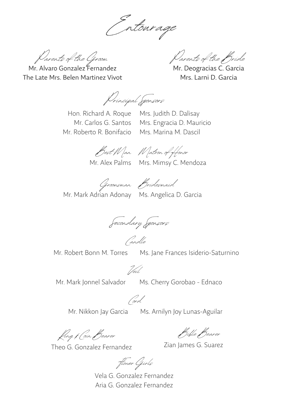 Entourage
Parents of the Groom
Mr. Alvaro Gonzalez Fernandez
The Late Mrs. Belen Martinez Vivot
Parents of the Bride
Mr. Deogracias C. Garcia
Mrs. Larni D. Garcia
Principal Sponsors
Hon. Richard A. Roque Mrs. Judith D. Dalisay
Mr. Carlos G. Santos Mrs. Engracia D. Mauricio
Mr. Roberto R. Bonifacio Mrs. Marina M. Dascil
Best Man Matron of Honor
Mr. Alex Palms Mrs. Mimsy C. Mendoza
Groomsman Bridesmaid
Mr. Mark Adrian Adonay Ms. Angelica D. Garcia
Secondary Sponsors
Candle
Mr. Robert Bonn M. Torres Ms. Jane Frances Isiderio-Saturnino
Veil
Mr. Mark Jonnel Salvador Ms. Cherry Gorobao - Ednaco
Cord
Mr. Nikkon Jay Garcia Ms. Amilyn Joy Lunas-Aguilar
Ring & Coin Bearer
Theo G. Gonzalez Fernandez
Bible Bearer
Zian James G. Suarez
Flower Girls
Vela G. Gonzalez Fernandez
Aria G. Gonzalez Fernandez